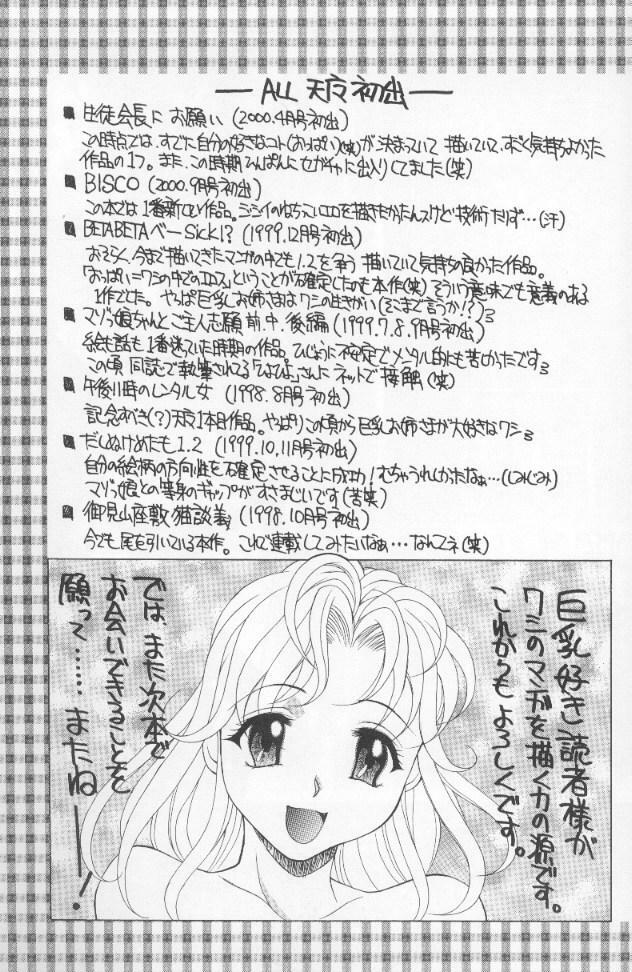 — ALL 天魔初出 —
■ 生徒会長に お願い (2000.4月号初出)
この時点では、すでに自分の好きなコト(おっぱい)(笑)が 決まっていて 描いていて、すごく気持ちよかった
作品の1つ。また、この時期ひんぱんにセガチャに出入りしてました(笑)
■ BISCO (2000.9月号初出)
この本では1番新しい作品。ジジイのねちっこいエロを描きたかたんスけど技術たりず…(汗)
■ BETABETAべーSick!? (1999.12月号初出)
おそらく、今まで描いてきたマンガの中でも1.2を争う 描いていて気持ちの良かった作品。
「おっぱい=ワシの中でのエロス」ということが確定したのも本作(笑) そういう意味でも意義のある
1作でした。やっぱ巨乳お姉さまはワシの生きがい(そこまで言うか!?)
■ マゾっ娘ちゃんとご主人志願 前.中.後編 (1999.7.8.9月号初出)
絵も話も1番迷っていた時期の作品。ひじょうに不安定でメンタル的にも苦しかったです
この頃 同誌で執筆される「ぴよぴよ」さんに ネットで接触(笑)
■ 午後11時のレンタル女 (1998.8月号初出)
記念すべき(?)天魔1本目作品。やっぱりこの頃から巨乳お姉さまが大好きなワシ
■ だしぬけめたも1.2 (1999.10.11月号初出)
自分の絵柄の方向性を確定させることに成功!むちゃうれしかたなぁ…(しみじみ)
マゾっ娘との等身のギャップがすさまじいです(苦笑)
■ 御見山座敷猫談義 (1998.10月号初出)
今でも尾を引いている本作。これで連載してみたいなぁ…なんてネ(笑)
巨乳好き読者様が
ワシのマンガを描く力の源です。
これからもよろしくです。
では、また次本で
お会いできることを
願って……またねー!